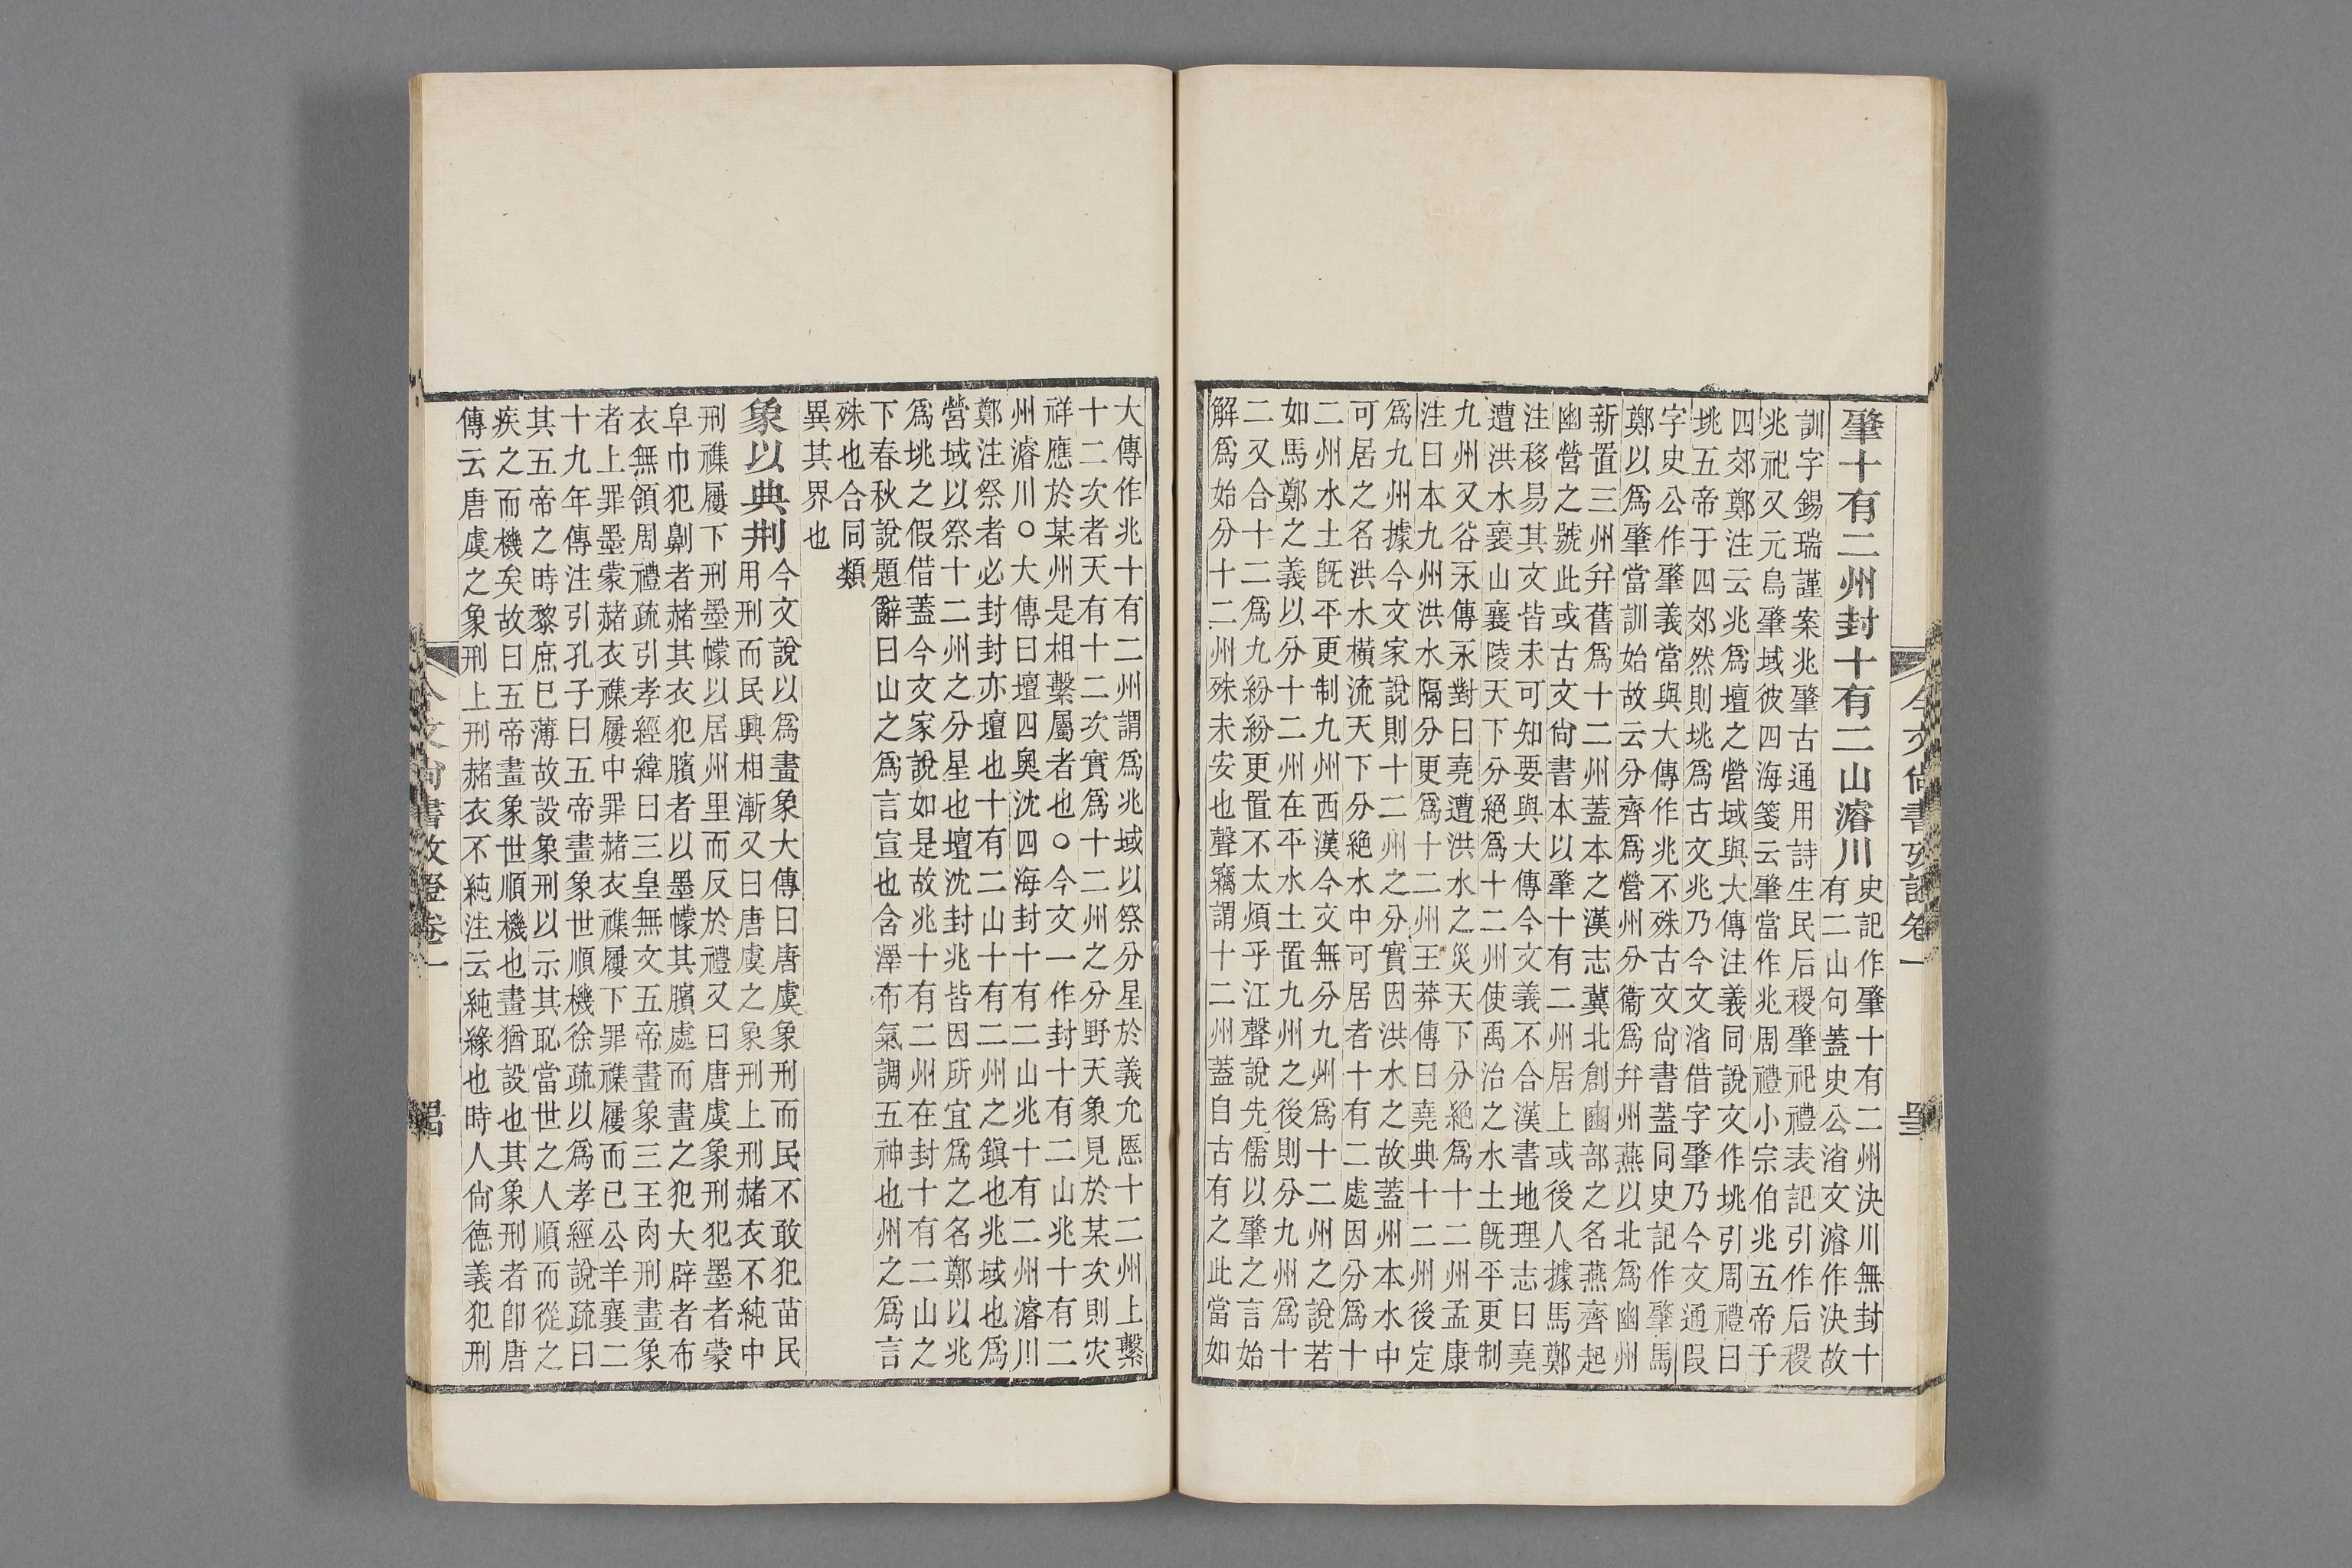 肇十有二州封十有二山濬川史記作肇十有二州決川無封十
有二山句蓋史公渻文濬作決故
訓字錫瑞謹案兆肇古通用詩生民后稷肇祀禮表記引作后稷
兆祀又元鳥肇域彼四海箋云肇當作兆周禮小宗伯兆五帝于
四郊鄭注云兆爲壇之營域與大傳注義同說文作垗引周禮曰
垗五帝于四郊然則垗爲古文兆乃今文渻借字肇乃今文通叚
字史公作肇義當與大傳作兆不殊古文尙書蓋同史記作肇馬
鄭以爲肇當訓始故云分齊爲營州分衞爲幷州燕以北爲幽州
新置三州幷舊爲十二州蓋本之漢志冀北創幽部之名燕齊起
幽營之號此或古文尙書本以肇十有二州居上或後人據馬鄭
注移易其文皆未可知要與大傳今文義不合漢書地理志曰堯
遭洪水襄山襄陵天下分絕爲十二州使禹治之水土旣平更制
九州又谷永傳永對曰堯遭洪水之災天下分絕爲十二州孟康
注曰本九州洪水隔分更爲十二州王莽傳曰堯典十二州後定
爲九州據今文家說則十二州之分實因洪水之故蓋州本水中
可居之名洪水橫流天下分絕水中可居者十有二處因分爲十
二州水土旣平更制九州西漢今文無分九州爲十二州之說若
如馬鄭之義以分十二州在平水土置九州之後則分九州爲十
二又合十二爲九紛紛更置不太煩乎江聲說先儒以肇之言始
解爲始分十二州殊未安也聲竊謂十二州蓋自古有之此當如
今文尙書攷證卷一
大傳作兆十有二州謂爲兆域以祭分星於義允愜十二州上繫
十二次者天有十二次實爲十二州之分野天象見於某次則灾
祥應於某州是相繫屬者也○今文一作封十有二山兆十有二
州濬川○大傳曰壇四奧沈四海封十有二山兆十有二州濬川
鄭注祭者必封封亦壇也十有二山十有二州之鎮也兆域也爲
營域以祭十二州之分星也壇沈封兆皆因所宜爲之名鄭以兆
爲垗之假借蓋今文家說如是故兆十有二州在封十有二山之
下春秋說題辭曰山之爲言宣也含澤布氣調五神也州之爲言
殊也合同類
異其界也
象以典刑今文說以爲畫象大傳曰唐虞象刑而民不敢犯苗民
用刑而民興相漸又曰唐虞之象刑上刑赭衣不純中
刑襍屨下刑墨幪以居州里而反於禮又曰唐虞象刑犯墨者蒙
皁巾犯劓者赭其衣犯臏者以墨幪其臏處而畫之犯大辟者布
衣無領周禮疏引孝經緯曰三皇無文五帝畫象三王肉刑畫象
者上罪墨蒙赭衣襍屨中罪赭衣襍屨下罪襍屨而已公羊襄二
十九年傳注引孔子曰五帝畫象世順機徐疏以爲孝經說疏曰
其五帝之時黎庶已薄故設象刑以示其恥當世之人順而從之
疾之而機矣故曰五帝畫象世順機也畫猶設也其象刑者卽唐
傳云唐虞之象刑上刑赭衣不純注云純緣也時人尙德義犯刑
今文尙書攷證卷一